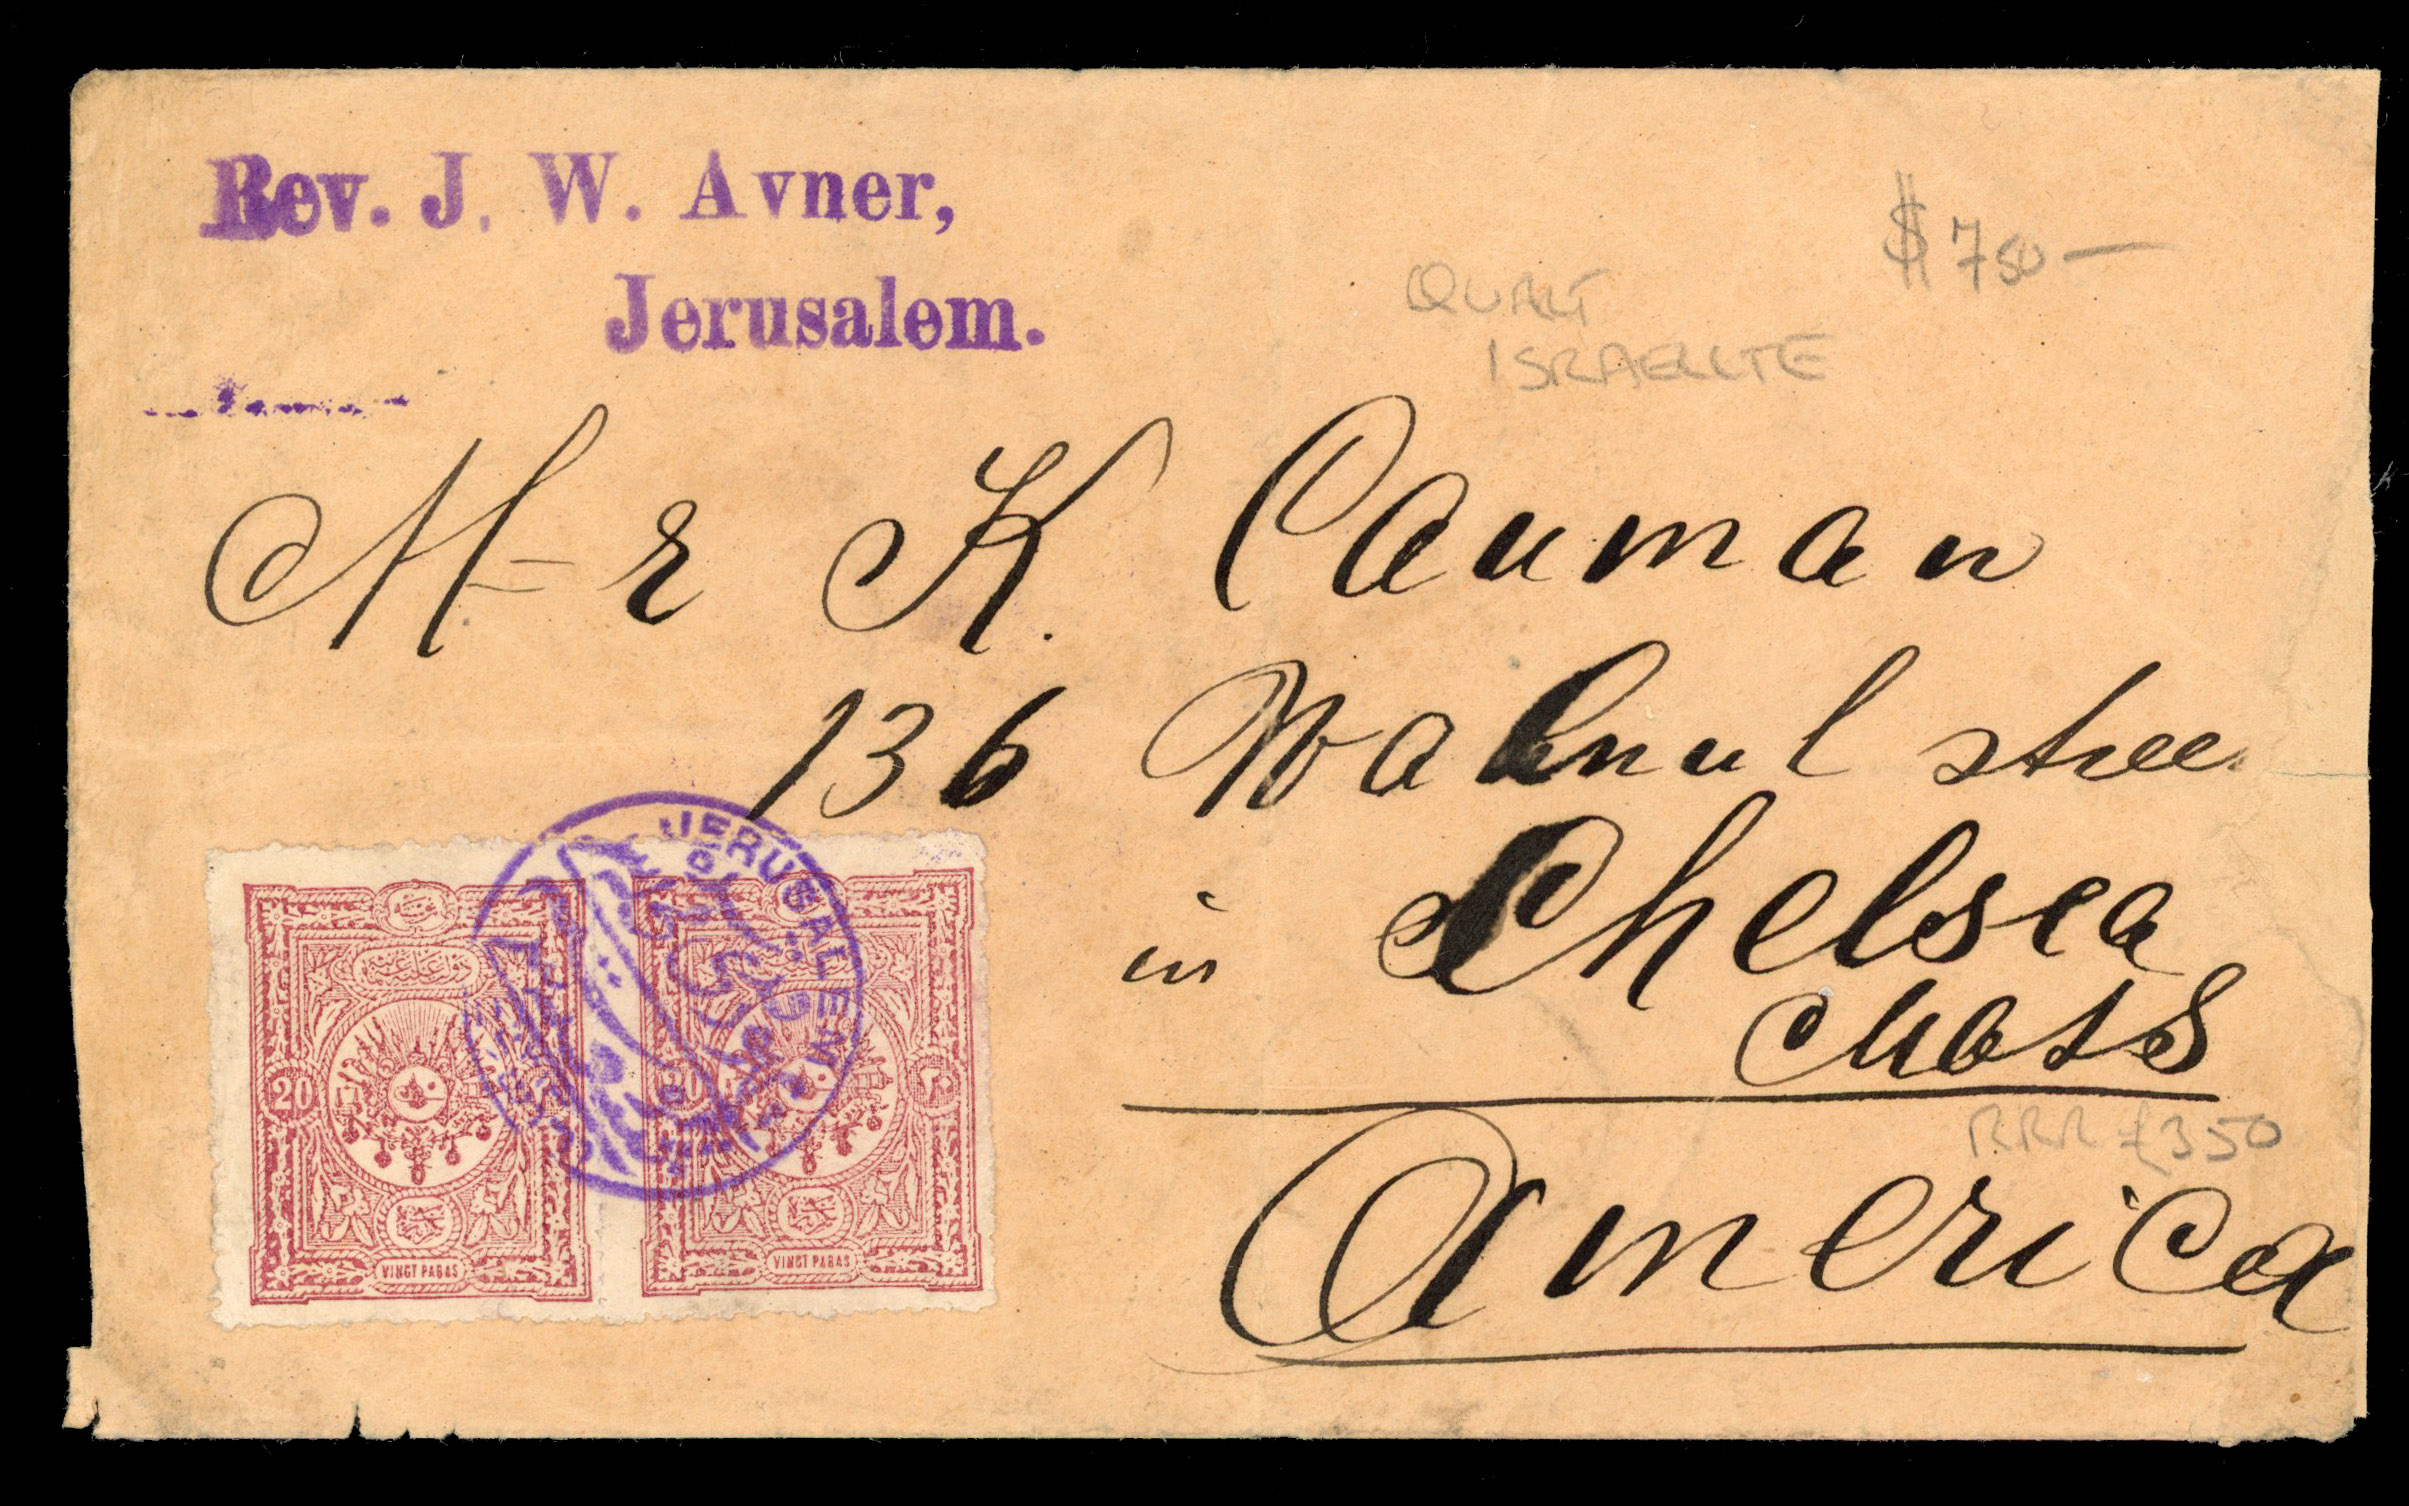 Rev. J. W. Avner,
Jerusalem.
$ 750 —
QUART
ISRAELITE
M=r K. Cauman
136 Walnul stree
in Chelsea
Mass
America
RRR £350
JERUSALEM
20
VINGT PARAS
20
VINGT PARAS